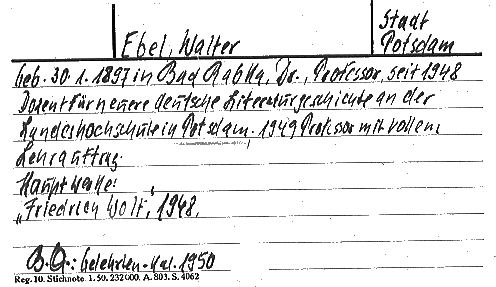 Ebel, Walter
Stadt
Potsdam
geb. 30.1.1897 in Bad Rabka, Dr., Professor, seit 1948
Dozent für neuere deutsche Literaturgeschichte an der
Landeshochschule in Potsdam. 1949 Professor mit vollem
Lehrauftrag.
Hauptwerke:
„Friedrich Wolf", 1948.
B.Q.: Gelehrten-Kal. 1950
Reg. 10. Stichnote. 1. 50. 232000. A. 803. S. 4062